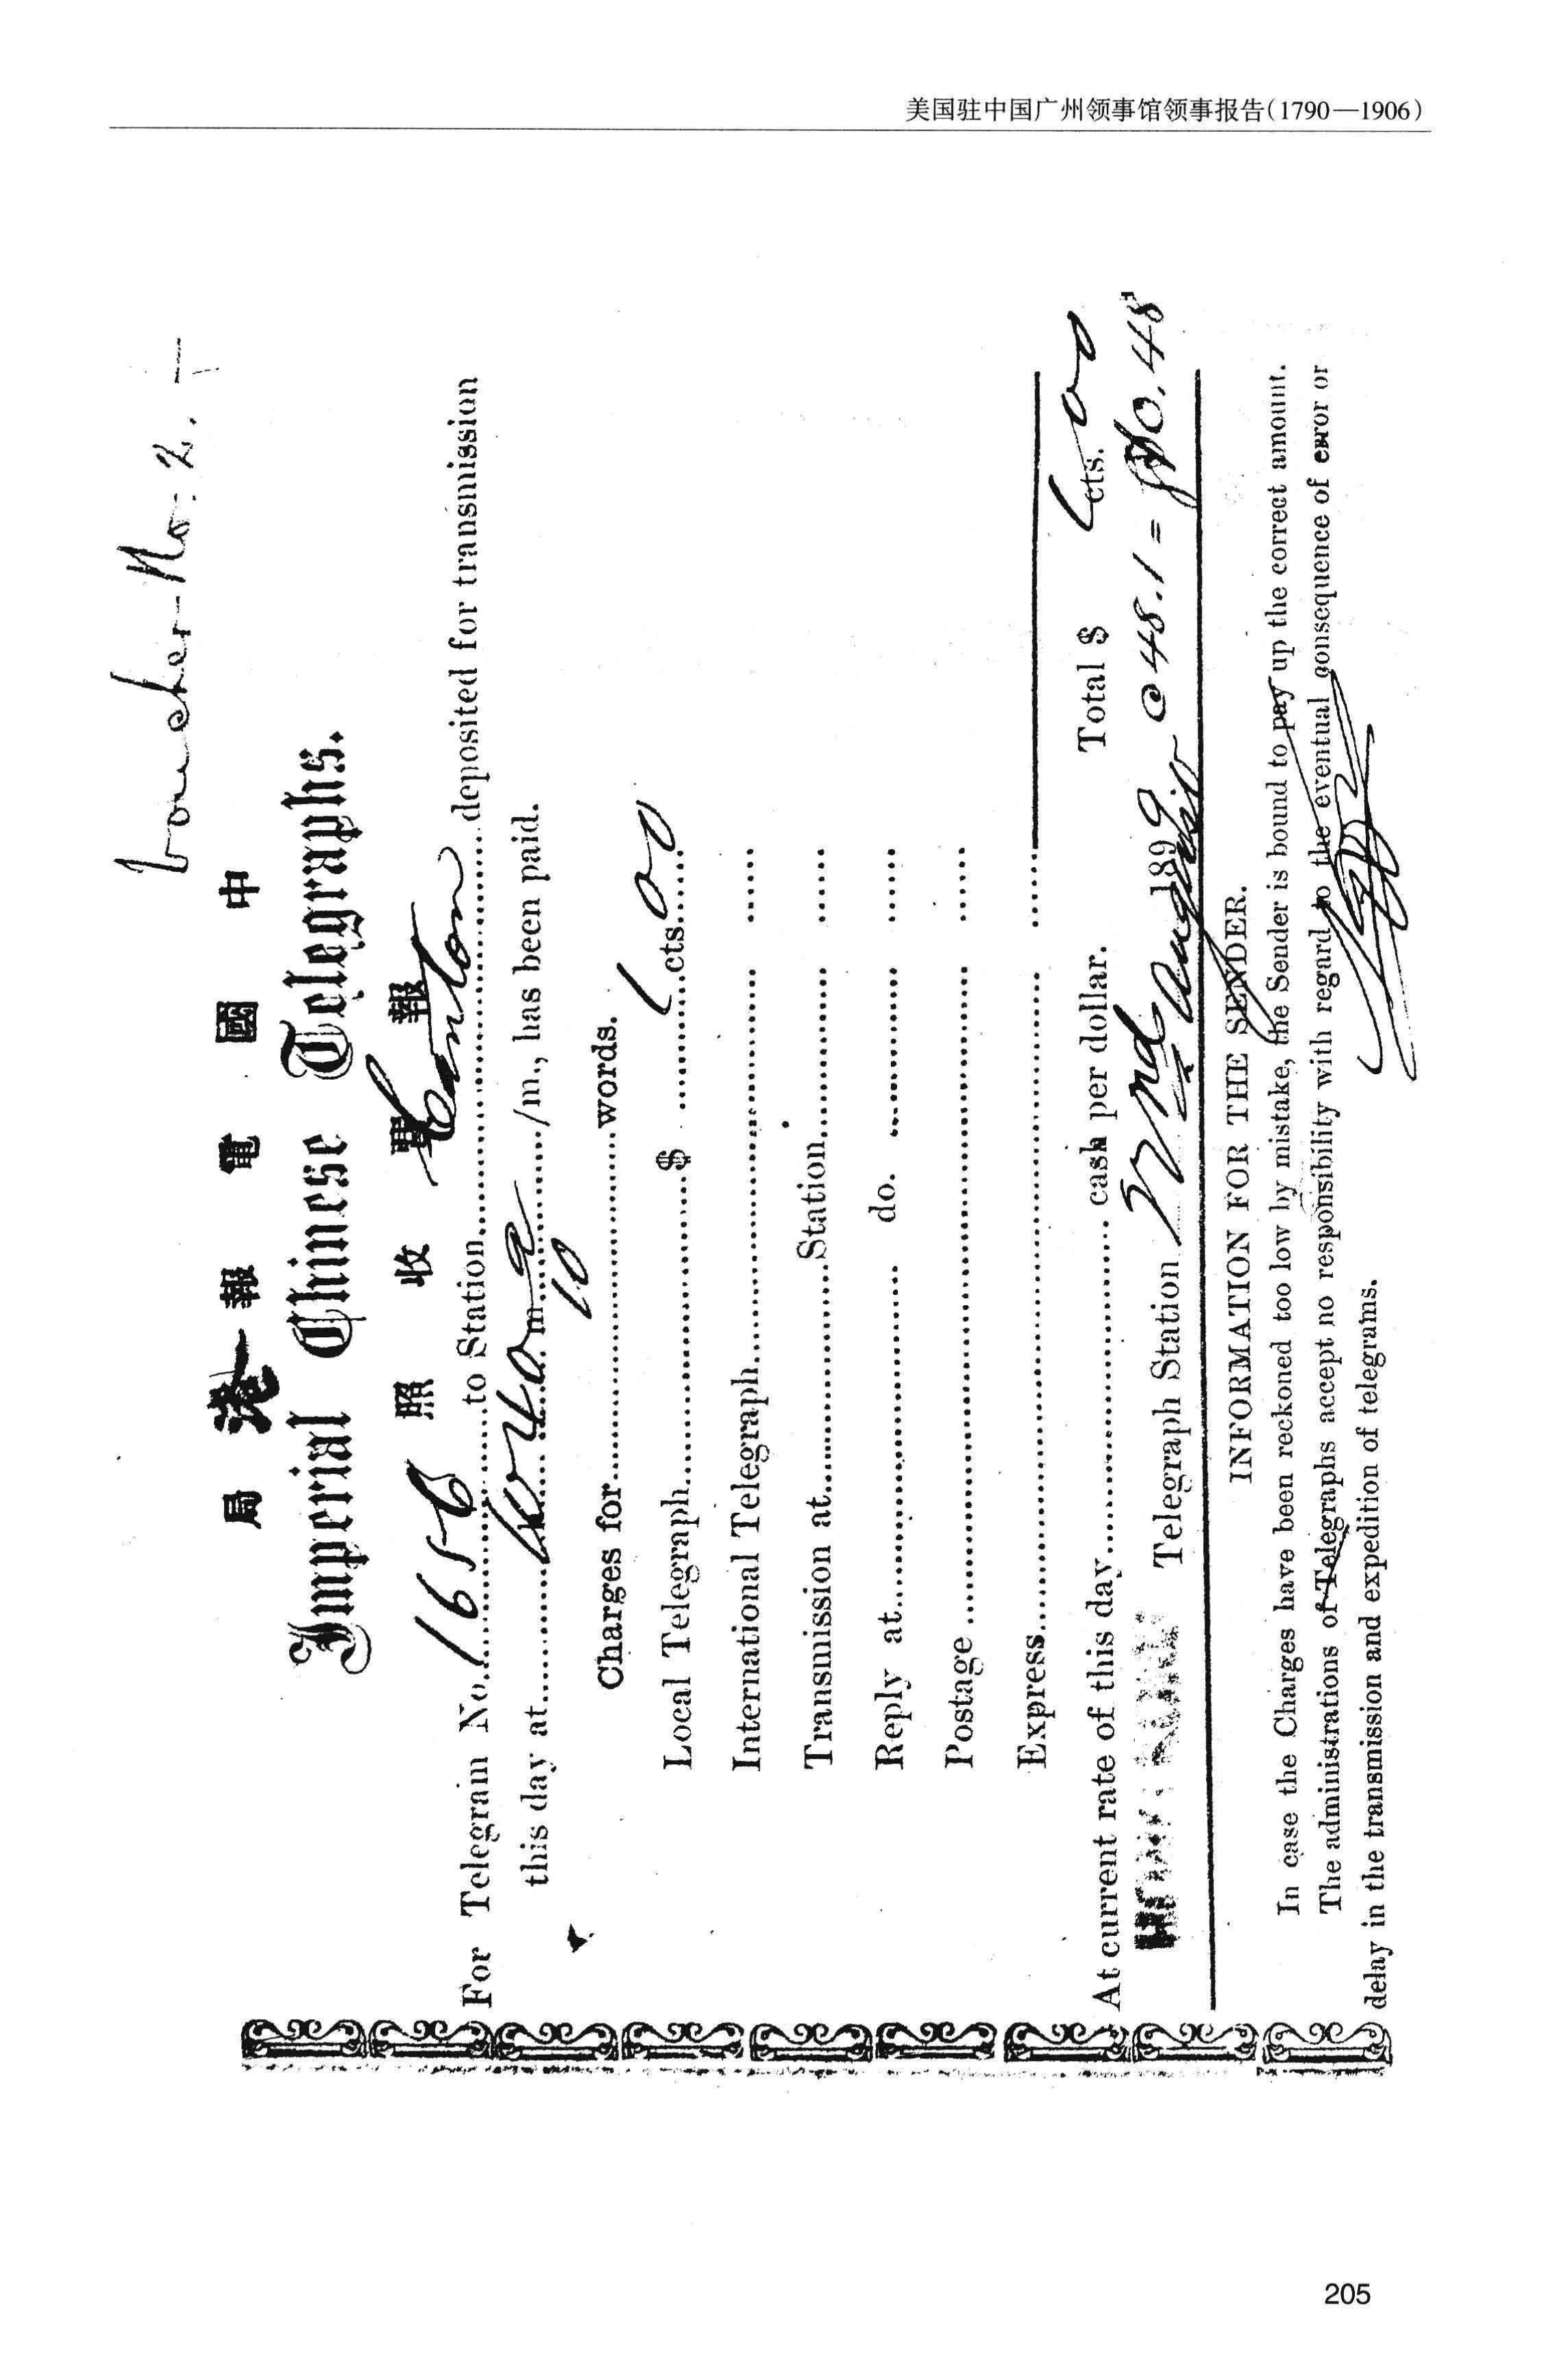 美国驻中国广州领事馆领事报告(1790—1906)
Voucher No: 2. —
局 港 報 電 國 中
Imperial Chinese Telegraphs.
照 收 費 報
For Telegram No. 1656 to Station Canton deposited for transmission
this day at 10 40 m a /m., has been paid.
Charges for 10 words.
Local Telegraph $ 1 cts 00
International Telegraph
Transmission at Station
Reply at do.
Postage
Express
At current rate of this day cash per dollar. Total $ 1 cts. 00
Telegraph Station 2nd August 1899 @ 48.1 = $0.48
INFORMATION FOR THE SENDER.
In case the Charges have been reckoned too low by mistake, the Sender is bound to pay up the correct amount.
The administrations of Telegraphs accept no responsibility with regard to the eventual consequence of error or
delay in the transmission and expedition of telegrams.
205